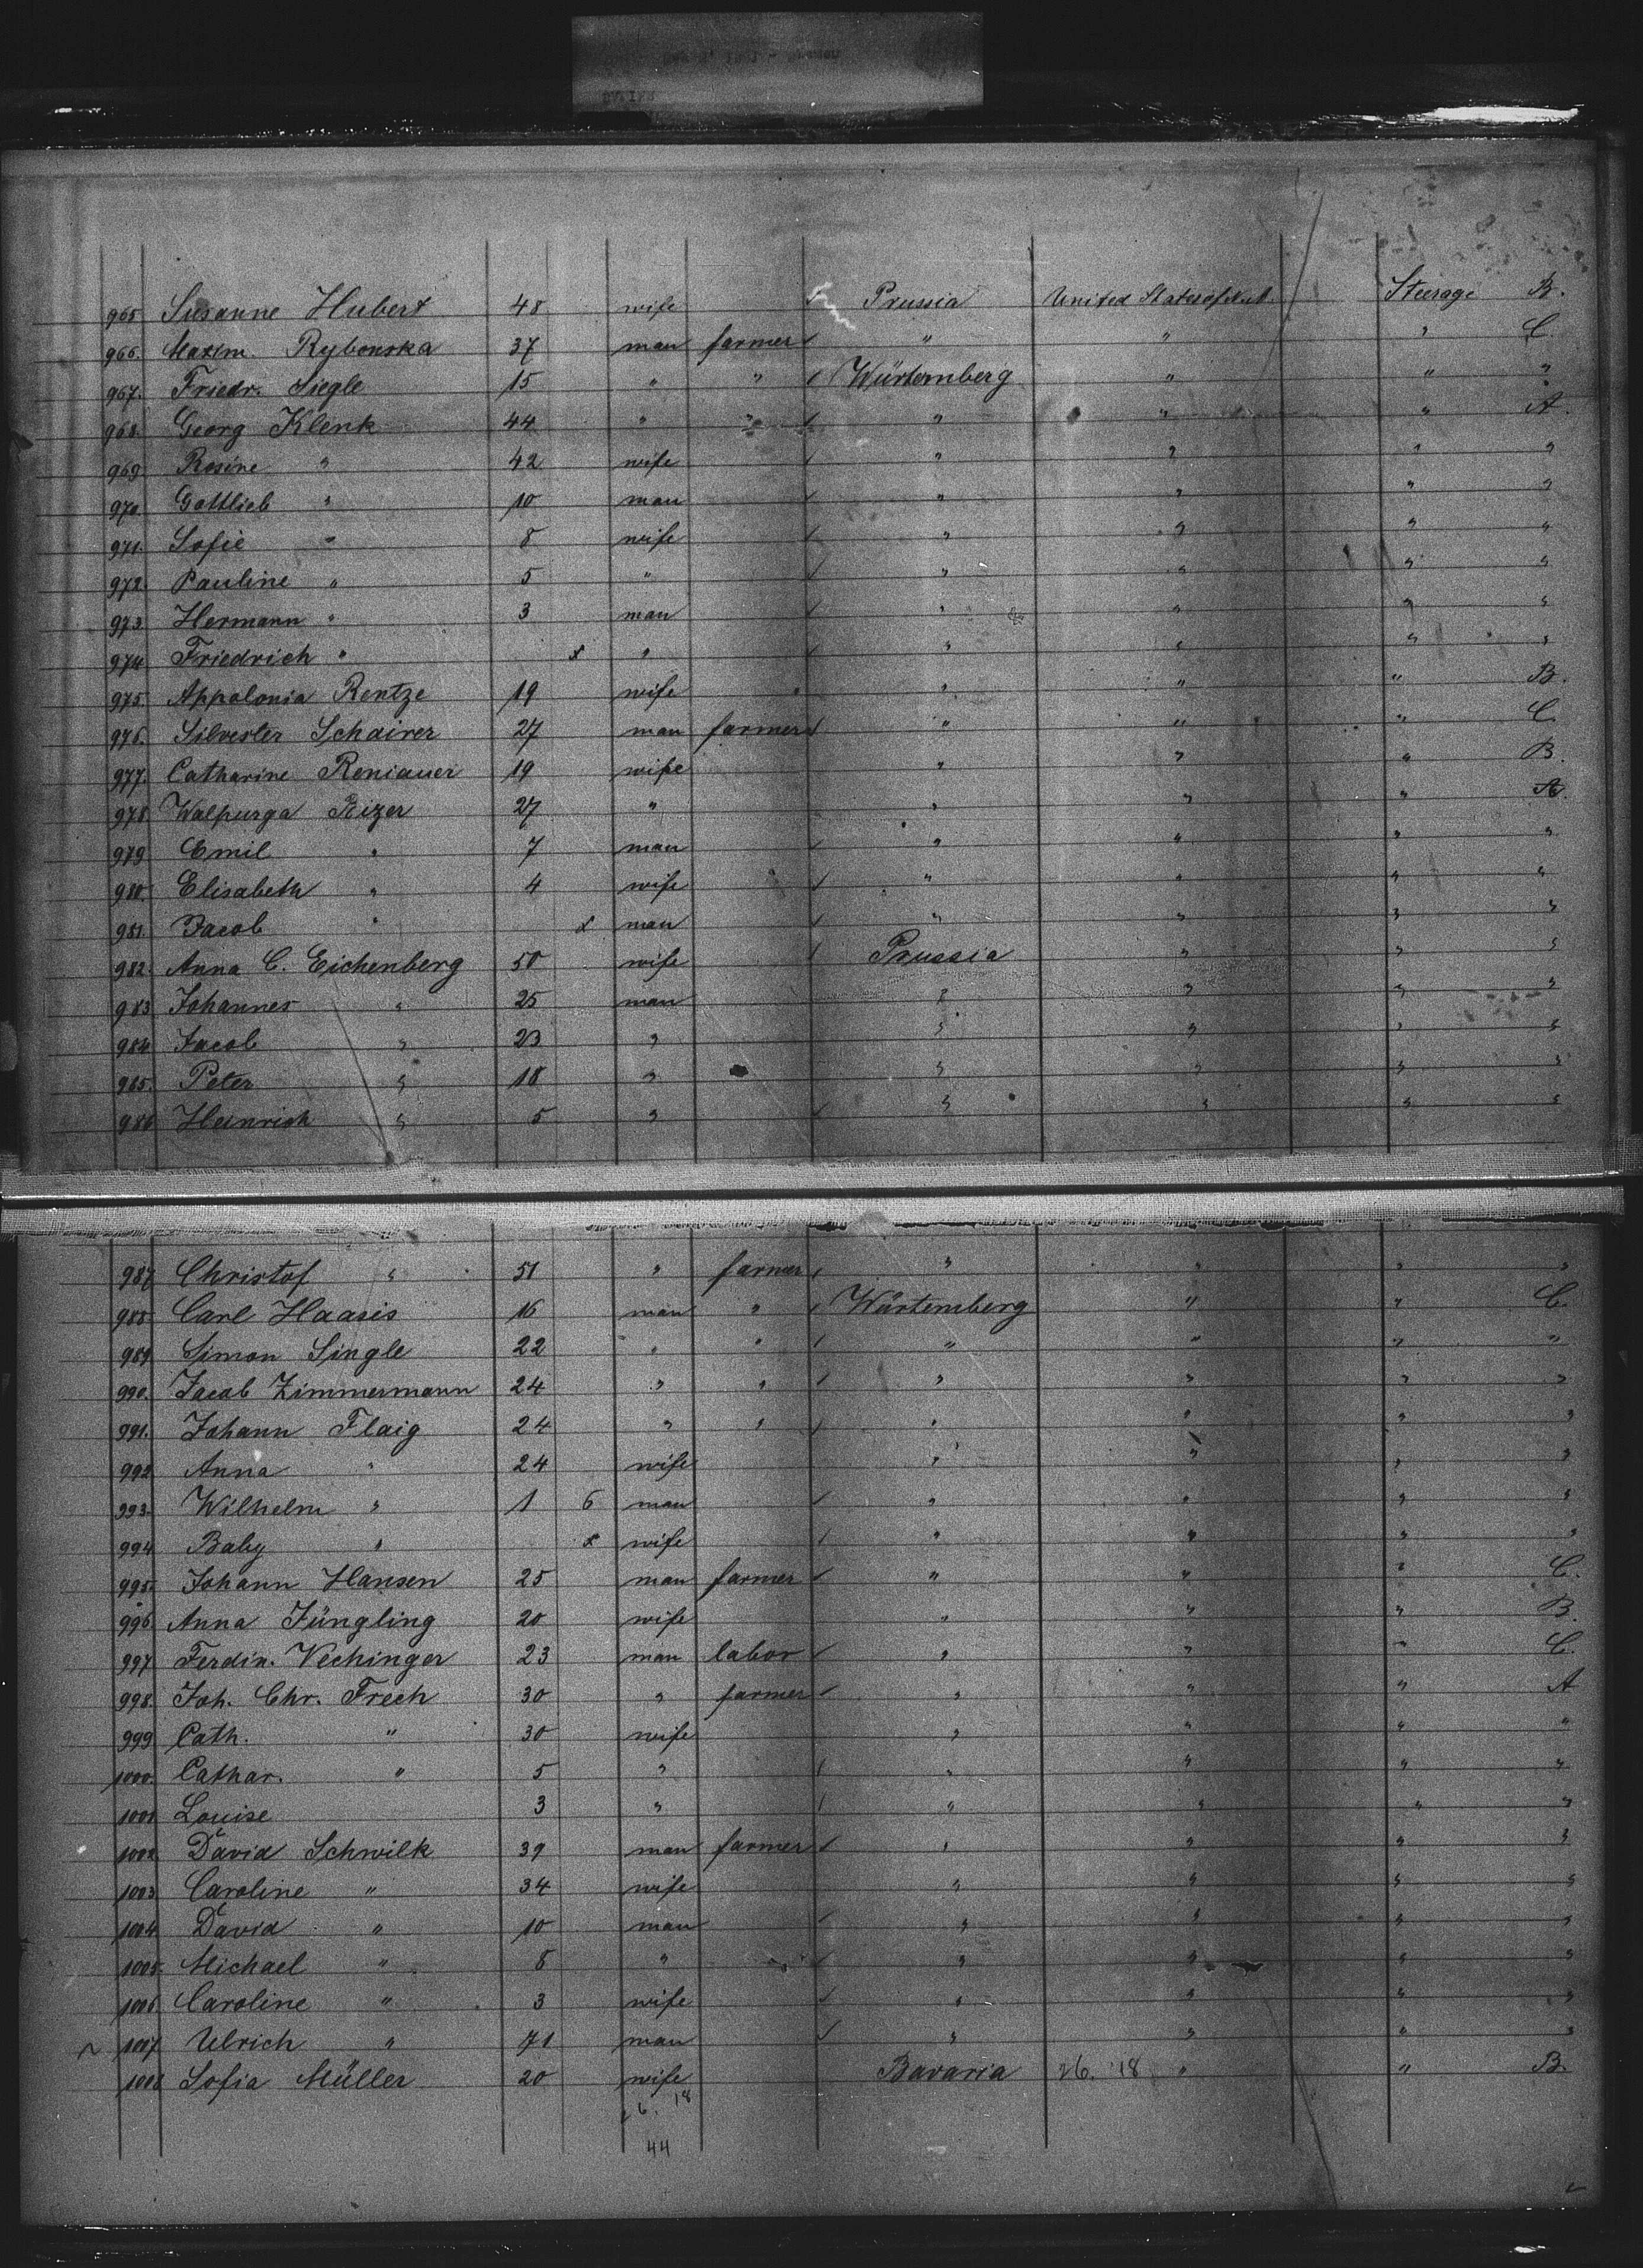 965 Susanne Hubert 48 wife Prussia United States of Steerage B.
966. Maxim. Rybonska 37 man farmer " " " C.
967. Friedr. Siegle 15 " " Würtemberg " " "
968 Georg Klenk 44 " " " " " A.
969 Rosine " 42 wife " " " "
970 Gottlieb " 10 man " " " "
971. Sofie " 8 wife " " " "
972. Pauline " 5 " " " " "
973. Hermann " 3 man " " " "
974 Friedrich " x " " " " "
975. Appolonia Rentze 19 wife " " " B.
976. Silvester Schairer 27 man farmer " " " C.
977. Catharine Reniauer 19 wife " " " B.
978. Walpurga Bizer 27 " " " " A.
979 Emil " 7 man " " " "
980. Elisabeth " 4 wife " " " "
981. Jacob " x man " " " "
982. Anna C. Eichenberg 50 wife Prussia " " "
983 Johannes " 25 man " " " "
984 Jacob " 23 " " " " "
985. Peter " 18 " " " " "
986 Heinrich " 5 " " " " "
987 Christof " 51 " farmer " " " "
988. Carl Haasis 16 man " Würtemberg " " C.
989 Simon Single 22 " " " " " "
990. Jacob Zimmermann 24 " " " " " "
991. Johann Flaig 24 " " " " " "
992 Anna " 24 wife " " " "
993. Wilhelm " 1 6 man " " " "
994 Baby " x wife " " " "
995. Johann Hansen 25 man farmer " " " C.
996 Anna Jüngling 20 wife " " " B.
997 Ferdin. Vechinger 23 man labor " " " C.
998. Joh. Chr. Frech 30 " farmer " " " A
999 Cath. " 30 wife " " " "
1000. Cathar. " 5 " " " " "
1001 Louise 3 " " " " "
1002 David Schwilk 39 man farmer " " " "
1003 Caroline " 34 wife " " " "
1004 David " 10 man " " " "
1005. Michael " 8 " " " " "
1006. Caroline " 3 wife " " " "
1007 Ulrich " 71 man " " " "
1008 Sofia Müller 20 wife Bavaria 26. 18 " " B.
26. 18
44